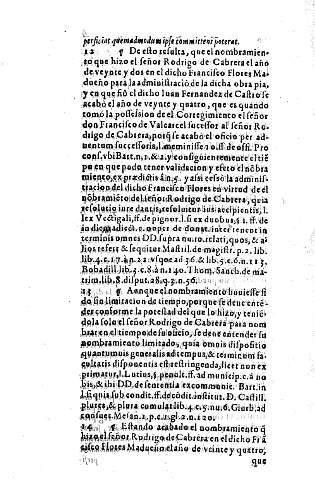 perficiat quemadmodum ipse committens poterat.
12 ¶ De esto resulta, que el nombramien-
to que hizo el señor Rodrigo de Cabrera el año
de veynte y dos en el dicho Francisco Flores Ma-
dueño para la administraciō de la dicha obra pia,
y en que fiò el dicho Iuan Fernandez de Castro se
acabò el año de veynte y quatro, que es quando
tomò la possession de el Corregimiento el señor
don Francisco de Valcarcel sucessor al señor Ro-
drigo de Cabrera, porq̄ se acabò el oficio per ad-
uentum successoris, l. meminisse 10. ff. de offi. Pro
cons. vbi Bart. n. 1. & 2. y consiguientemente el tiē
po en que pudo tener validacion y efeto el nōbra
miento, ex prædictis à n. 5. y assi cessò la adminis-
tracion del dicho Francisco Flores en virtud de el
nōbramiēto del señor Rodrigo de Cabrera, quia
resoluto iure dantis, resoluitur ius accipientis, l.
lex Vectigali, ff. de pignor. l. si ex duobus, § 1. ff. de
in diem addict.
terminis omnes DD. supra nu 10. relati, quos, & a-
lios refert & sequitur Mastril. de magistr. p. 2. lib.
lib. 4. c. 17. à n. 22. vsque ad 36. & lib. 5. c. 6. n. 113.
Bobadill. lib. 3. c. 8. à n. 140. Thom. Sanch. de ma-
trim. lib. 8. disput. 28. q. 2. n. 56.
13 ¶ Aunque el nombramiento huuiesse si
do sin limitacion de tiempo, porque se deue entē-
der conforme la potestad del que lo hizo, y teniē-
dola solo el señor Rodrigo de Cabrera para nom
brar en el tiempo de su oficio, se deue entender su
nombramiento limitado, quia omnis dispositio
quantumuis generalis ad tempus, & terminum fa-
cultatis disponentis est restringenda, licet non ex
primatur, l. Lutius, § penult. ff. ad municip. c. 2. no
bis, & ibi DD. de sententia excommunic. Bart. in
l. si quis sub condit. ff. de cōdit. institut. D. Castill.
plures, & plura cumulat lib. 4. c. 5. nu. 6. Giurb. ad
consuet. Mesan. 2. p. c. 1. gl. 2. n. 10.
14 ¶ Estando acabado el nombramiento q̄
hizo el señor Rodrigo de Cabrera en el dicho Frā
cisco Flores Madueño el año de veynte y quatro,
que